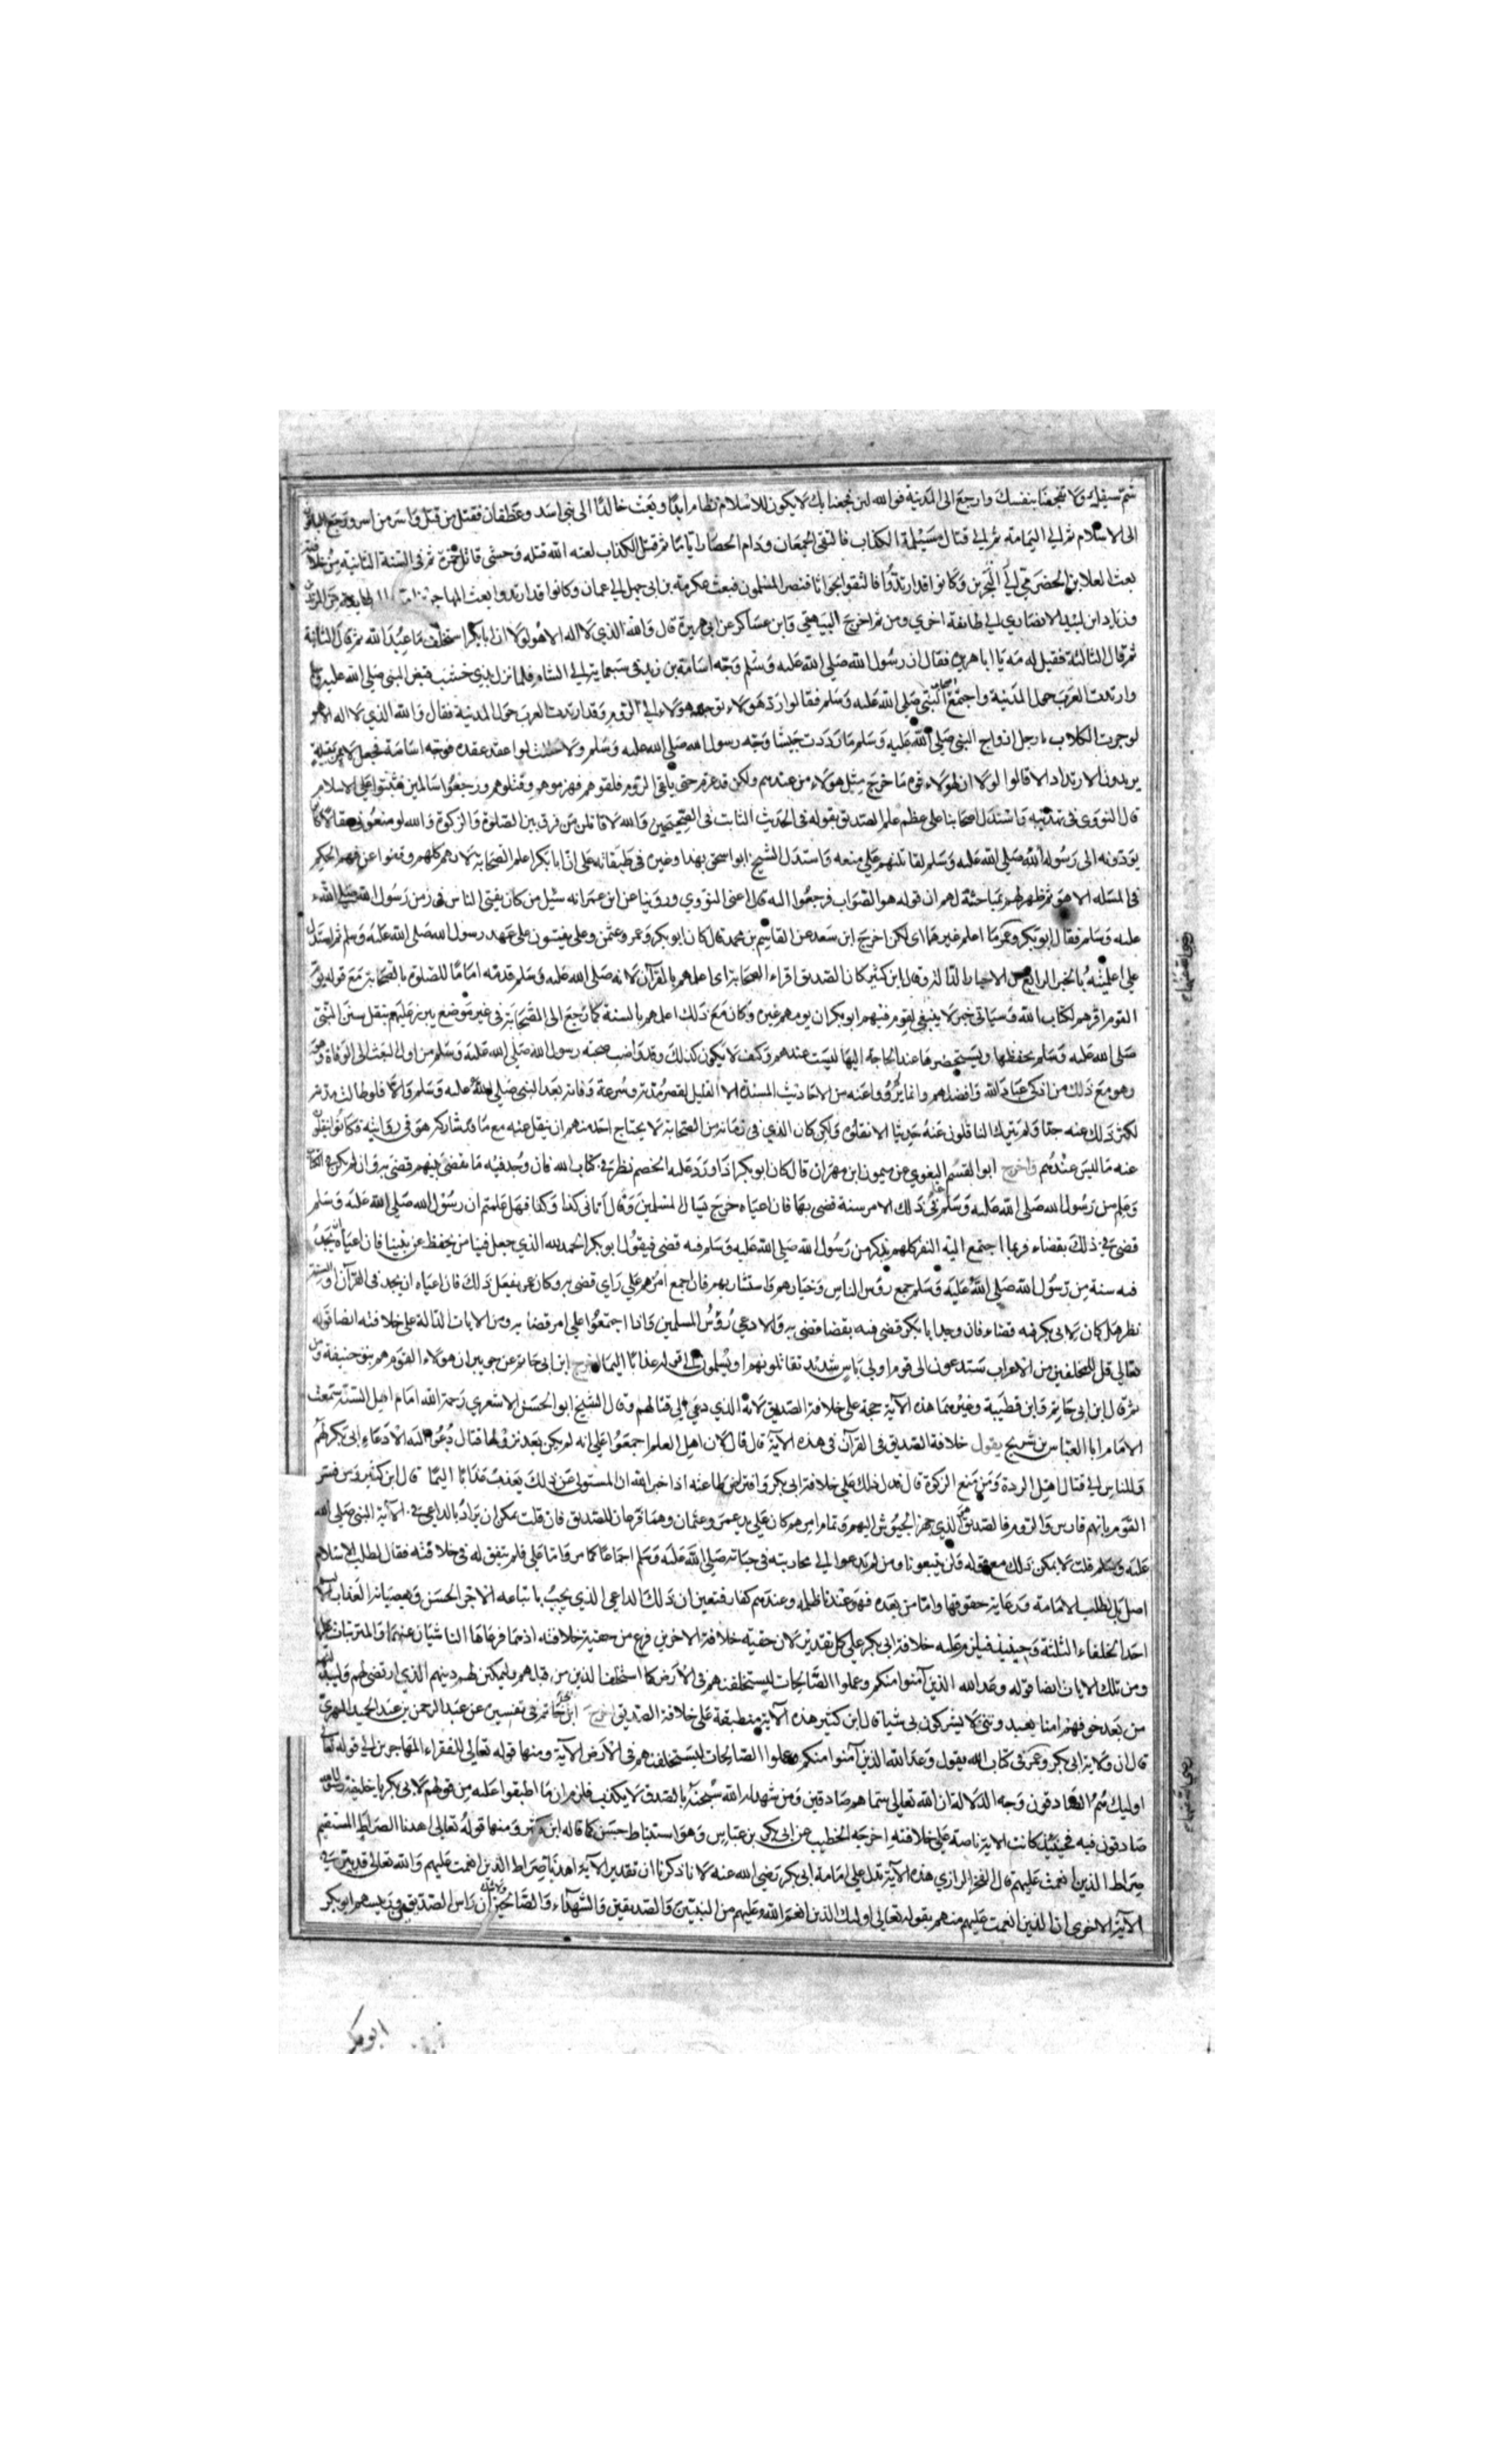 شم سيفك ولا تفجعنا بنفسك وارجع الى المدينة فوالله لئن فجعنا بك لا يكون للاسلام نظام ابدا وبعث خالدا الى بنى اسد وغطفان فقتل من قتل واسر من اسر ورجع الباقون
الى الاسلام ثم الى اليمامة ثم الى قتال مسيلمة الكذاب فالتقى الجمعان ودام الحصار اياما ثم قتل الكذاب لعنه الله قتله وحشى قاتل حمزة ثم فى السنة الثانية من خلافته
بعث العلا بن الحضرمى الى البحرين وكانوا قد ارتدوا فالتقوا بجواثا فنصر المسلمون فبعث عكرمة بن ابى جهل الى عمان وكانوا قد ارتدوا وبعث المهاجر
وزياد ابن لبيد الانصارى الى طائفة اخرى ومن ثم اخرج البيهقى وابن عساكر عن ابى هريرة قال والله الذى لا اله الا هو لولا ان ابا بكر استخلف ما عبد الله ثم قال الثانية
ثم قال الثالثة فقيل له مه يا ابا هريرة فقال ان رسول الله صلى الله عليه وسلم وجه اسامة بن زيد فى سبعماية الى الشام فلما نزل بذى خشب قبض النبى صلى الله عليه وسلم
وارتدت العرب حول المدينة واجتمع اصحاب النبى صلى الله عليه وسلم فقالوا رد هؤلاء توجه هؤلاء الى الروم وقد ارتدت العرب حول المدينة فقال والله الذى لا اله الا هو
لو جرت الكلاب بارجل ازواج النبى صلى الله عليه وسلم ما رددت جيشا وجه رسول الله صلى الله عليه وسلم ولا حللت لوا عقده فوجه اسامة فجعل لا يمر بقبيلة
يريدون الارتداد الا قالوا لولا ان لهؤلاء قوة ما خرج مثل هؤلاء من عندهم ولكن ندعهم حتى يلقى الروم فلقوهم فهزموهم وقتلوهم ورجعوا سالمين فثبتوا على الاسلام
قال النووى فى تهذيبه واستدل اصحابنا على عظم علم الصديق بقوله فى الحديث الثابت فى الصحيحين والله لاقاتلن من فرق بين الصلوة والزكوة والله لو منعونى عقالا كانوا
يؤدونه الى رسول الله صلى الله عليه وسلم لقاتلتهم على منعه واستدل الشيخ ابو اسحق بهذا وغيره فى طبقاته على ان ابا بكر اعلم الصحابة لانهم كلهم وقفوا عن فهم الحكم
فى المسئلة الا هو ثم ظهر لهم بمباحثته لهم ان قوله هو الصواب فرجعوا اليه قال اعنى النووى وروينا عن ابن عمر انه سئل من كان يفتى الناس فى زمن رسول الله صلى الله
عليه وسلم فقال ابو بكر وعمر ما اعلم غيرهما اى لكن اخرج ابن سعد عن القاسم بن محمد قال كان ابو بكر وعمر وعثمن وعلى يفتون على عهد رسول الله صلى الله عليه وسلم ثم استدل
على اعلميته بالخبر الرابع من الاخبار الدالة وقال ابن كثير كان الصديق اقراء الصحابة اى اعلمهم بالقرآن لانه صلى الله عليه وسلم قدمه اماما للصلوة بالصحابة مع قوله يؤم
القوم اقرهم لكتاب الله وسياتى خبر لا ينبغى لقوم فيهم ابو بكر ان يومهم غيره وكان مع ذلك اعلمهم بالسنة كما رجع الى الصحابة فى غير موضع يبرز عليهم بنقل سنن النبى
صلى الله عليه وسلم يحفظها ويستحضرها عند الحاجة اليها ليست عندهم وكيف لا يكون كذلك وقد واضب صحبة رسول الله صلى الله عليه وسلم من اول البعث الى الوفاة
وهو مع ذلك من اذكى عباد الله وافضلهم وانما لم يرووا عنه من الاحاديث المسندة الا القليل لقصر مدته وسرعة وفاته بعد النبى صلى الله عليه وسلم والا فلو طالت مدته
لكثر ذلك عنه جدا ولم يترك الناقلون عنه حديثا الا نقلوه ولكن كان الذى فى زمانه من الصحابة لا يحتاج احد منهم ان ينقل عنه مع ما قد شاركه هو فى روايته فكانوا ينقلون
عنه ما ليس عندهم واخرج ابو القسم البغوى عن ميمون ابن مهران قال كان ابو بكر اذا ورد عليه الخصم نظر فى كتاب الله فان وجد فيه ما يقضى بينهم قضى به وان لم يكن فى الكتاب
وعلم من رسول الله صلى الله عليه وسلم فى ذلك الامر سنة قضى بها فان اعياه خرج يسال المسلمين وقال اتانى كذا وكذا فهل علمتم ان رسول الله صلى الله عليه وسلم
قضى فى ذلك بقضاء فربما اجتمع اليه النفر كلهم يذكر من رسول الله صلى الله عليه وسلم فيه قضى فيقول ابو بكر الحمد لله الذى جعل فينا من يحفظ عن نبينا فان اعياه ان يجد
فيه سنة من رسول الله صلى الله عليه وسلم جمع رؤس الناس وخيارهم واستشارهم فان اجمع امرهم على راى قضى به وكان عمر يفعل ذلك فان اعياه ان يجد فى القرآن او السنة
نظر هل كان لابى بكر فيه قضاء فان وجد ابا بكر قضى فيه بقضا قضى به والا دعى رؤس المسلمين فاذا اجتمعوا على امر قضا به ومن الايات الدالة على خلافته ايضا قوله
تعالى قل للمخلفين من الاعراب ستدعون الى قوم اولى باس شديد تقاتلونهم او يسلمون الى قوله عذابا اليما اخرج ابن ابى حاتم عن جويبر ان هؤلاء القوم هم بنو حنيفة ومن
ثم قال ابن ابى حاتم وابن قطيبة وغيرهما هذه الآية حجة على خلافة الصديق لانه الذى دعى الى قتالهم وقال الشيخ ابو الحسن الاشعرى رحمة الله امام اهل السنة سمعت
الامام ابا العباس بن شريح يقول خلافة الصديق فى القرآن فى هذه الآية قال لان اهل العلم اجمعوا على انه لم يكن بعد نزولها قتال دعوا اليه الا دعاء ابى بكر لهم
وللناس الى قتال اهل الردة ومن منع الزكوة قال فدل ذلك على خلافة ابى بكر وافترض طاعته اذ اخبر الله ان المستولى عن ذلك يعذب عذابا اليما قال ابن كثير ومن فسر
القوم بانهم فارس والروم فالصديق هو الذى جهز الجيوش اليهم وتمام امرهم كان على يد عمر وعثمان وهما فرعان للصديق فان قلت يمكن ان يراد بالداعى فى الآية النبى صلى الله
عليه وسلم قلت لا يمكن ذلك مع قوله قل لن تتبعونا ومن ثم لم يدعوا الى محاربته فى حياته صلى الله عليه وسلم اجماعا كما مر واما على فلم يتفق له فى خلافته فقال لطلب الاسلام
اصلا بل لطلب الامامة ورعاية حقوقها واما من بعده فهو عندنا ظلمة وعندهم كفار فتعين ان ذلك الداعى الذى يجب باتباعه الاجر الحسن وبعصيانه العذاب
احد الخلفاء الثلثة وحينئذ فيلزم عليه خلافة ابى بكر على كل تقدير لان حقية خلافة الاخرين فرع من حقية خلافته اذ هما فرعاها الناشيان عنها والمترتبان عليها
ومن تلك الايات ايضا قوله وعد الله الذين آمنوا منكم وعملوا الصالحات ليستخلفنهم فى الارض كما استخلف الذين من قبلهم وليمكنن لهم دينهم الذى ارتضى لهم وليبدلنهم
من بعد خوفهم امنا يعبدوننى لا يشركون بى شيا قال ابن كثير هذه الآية منطبقة على خلافة الصديق اخرج ابن ابى حاتم فى تفسيره عن عبد الرحمن بن عبد الحميد المهرى
قال ان ولاية ابى بكر وعمر فى كتاب الله يقول وعد الله الذين آمنوا منكم وعملوا الصالحات ليستخلفنهم فى الارض الآية ومنها قوله تعالى للفقراء المهاجرين الى قوله تعالى
اوليك هم الصادقون وجه الدلالة ان الله تعالى سماهم صادقين ومن شهد له الله سبحنه بالصدق لا يكذب فلزم ان ما اطبقوا عليه من قولهم لابى بكر يا خليفة رسول الله
صادقون فيه فحينئذ كانت الاية ناصة على خلافته اخرجه الخطيب عن ابى بكر بن عباس وهو استنباط حسن كما قاله ابن كثير ومنها قوله تعالى اهدنا الصراط المستقيم
صراط الذين انعمت عليهم قال الفخر الرازى هذه الآية تدل على امامة ابى بكر رضى الله عنه لانا ذكرنا ان تقدير الآية اهدنا صراط الذين انعمت عليهم والله تعالى قد بين فى
الآية الاخرى ان الذين انعمت عليهم منهم بقوله تعالى اوليك الذين انعم الله عليهم من النبيين والصديقين والشهداء والصالحين ولا شك ان راس الصديقين ورئيسهم ابو بكر
ابو بكر